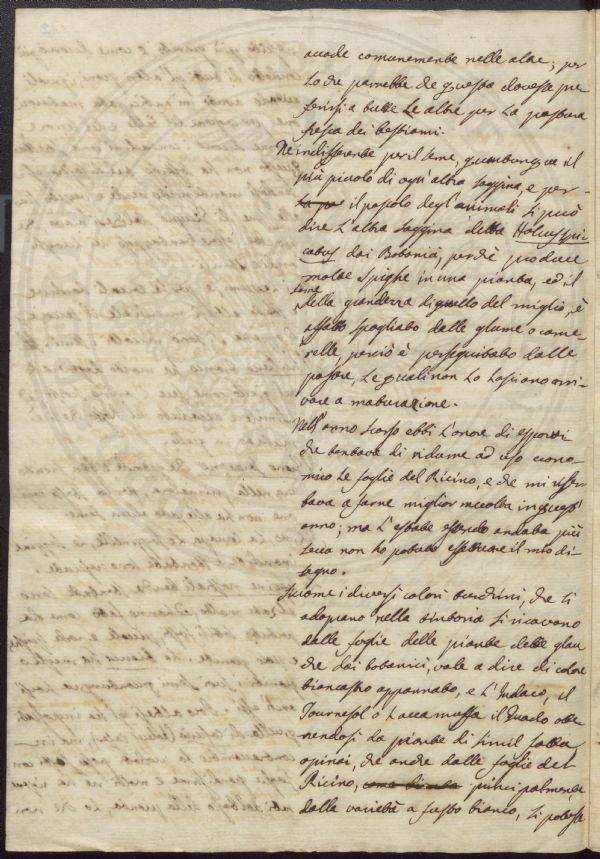 acade comunemente nelle altre; per
lo che parrebbe che questa dovesse pre
ferirsi a tutte le altre per la pastura
fresca dei bestiami.
Nè indifferente per il seme, quantunque il
più piccolo di ogn' altra saggina, e per
la pa il pascolo degl' animali si può
dire l' altra saggina detta Holcus spi
catus dai Botanici, perchè produce
molte spighe in una pianta, ed il
seme
della grandezza di quello del miglio, è
affatto spogliato dalle glume o came
relle, perciò è perseguitato dalle
passere, le quali non lo lasciano arri
vare a maturazione.
Nell' anno scorso ebbi l' onore di esporvi
che tentavo di ridurre ad uso econo
mico le foglie del Ricino, e che mi riser
bava a farne miglior raccolta in quest'
anno; ma l' estate essendo andata più
secca non ho potuto effettuare il mio di
segno.
Siccome i diversi colori turchini, che si
adoprano nella tintoria si ricavano
dalle foglie delle piante dette glau
che dai botanici, vale a dire di colore
biancastro appannato, e l' Indaco, il
Tournesol o Lacca muffa il Guado otte
nendosi da piante di simil fatta
opinai, che anche dalle foglie del
Ricino, principalmente
dalla varietà a fusto bianco, si potesse